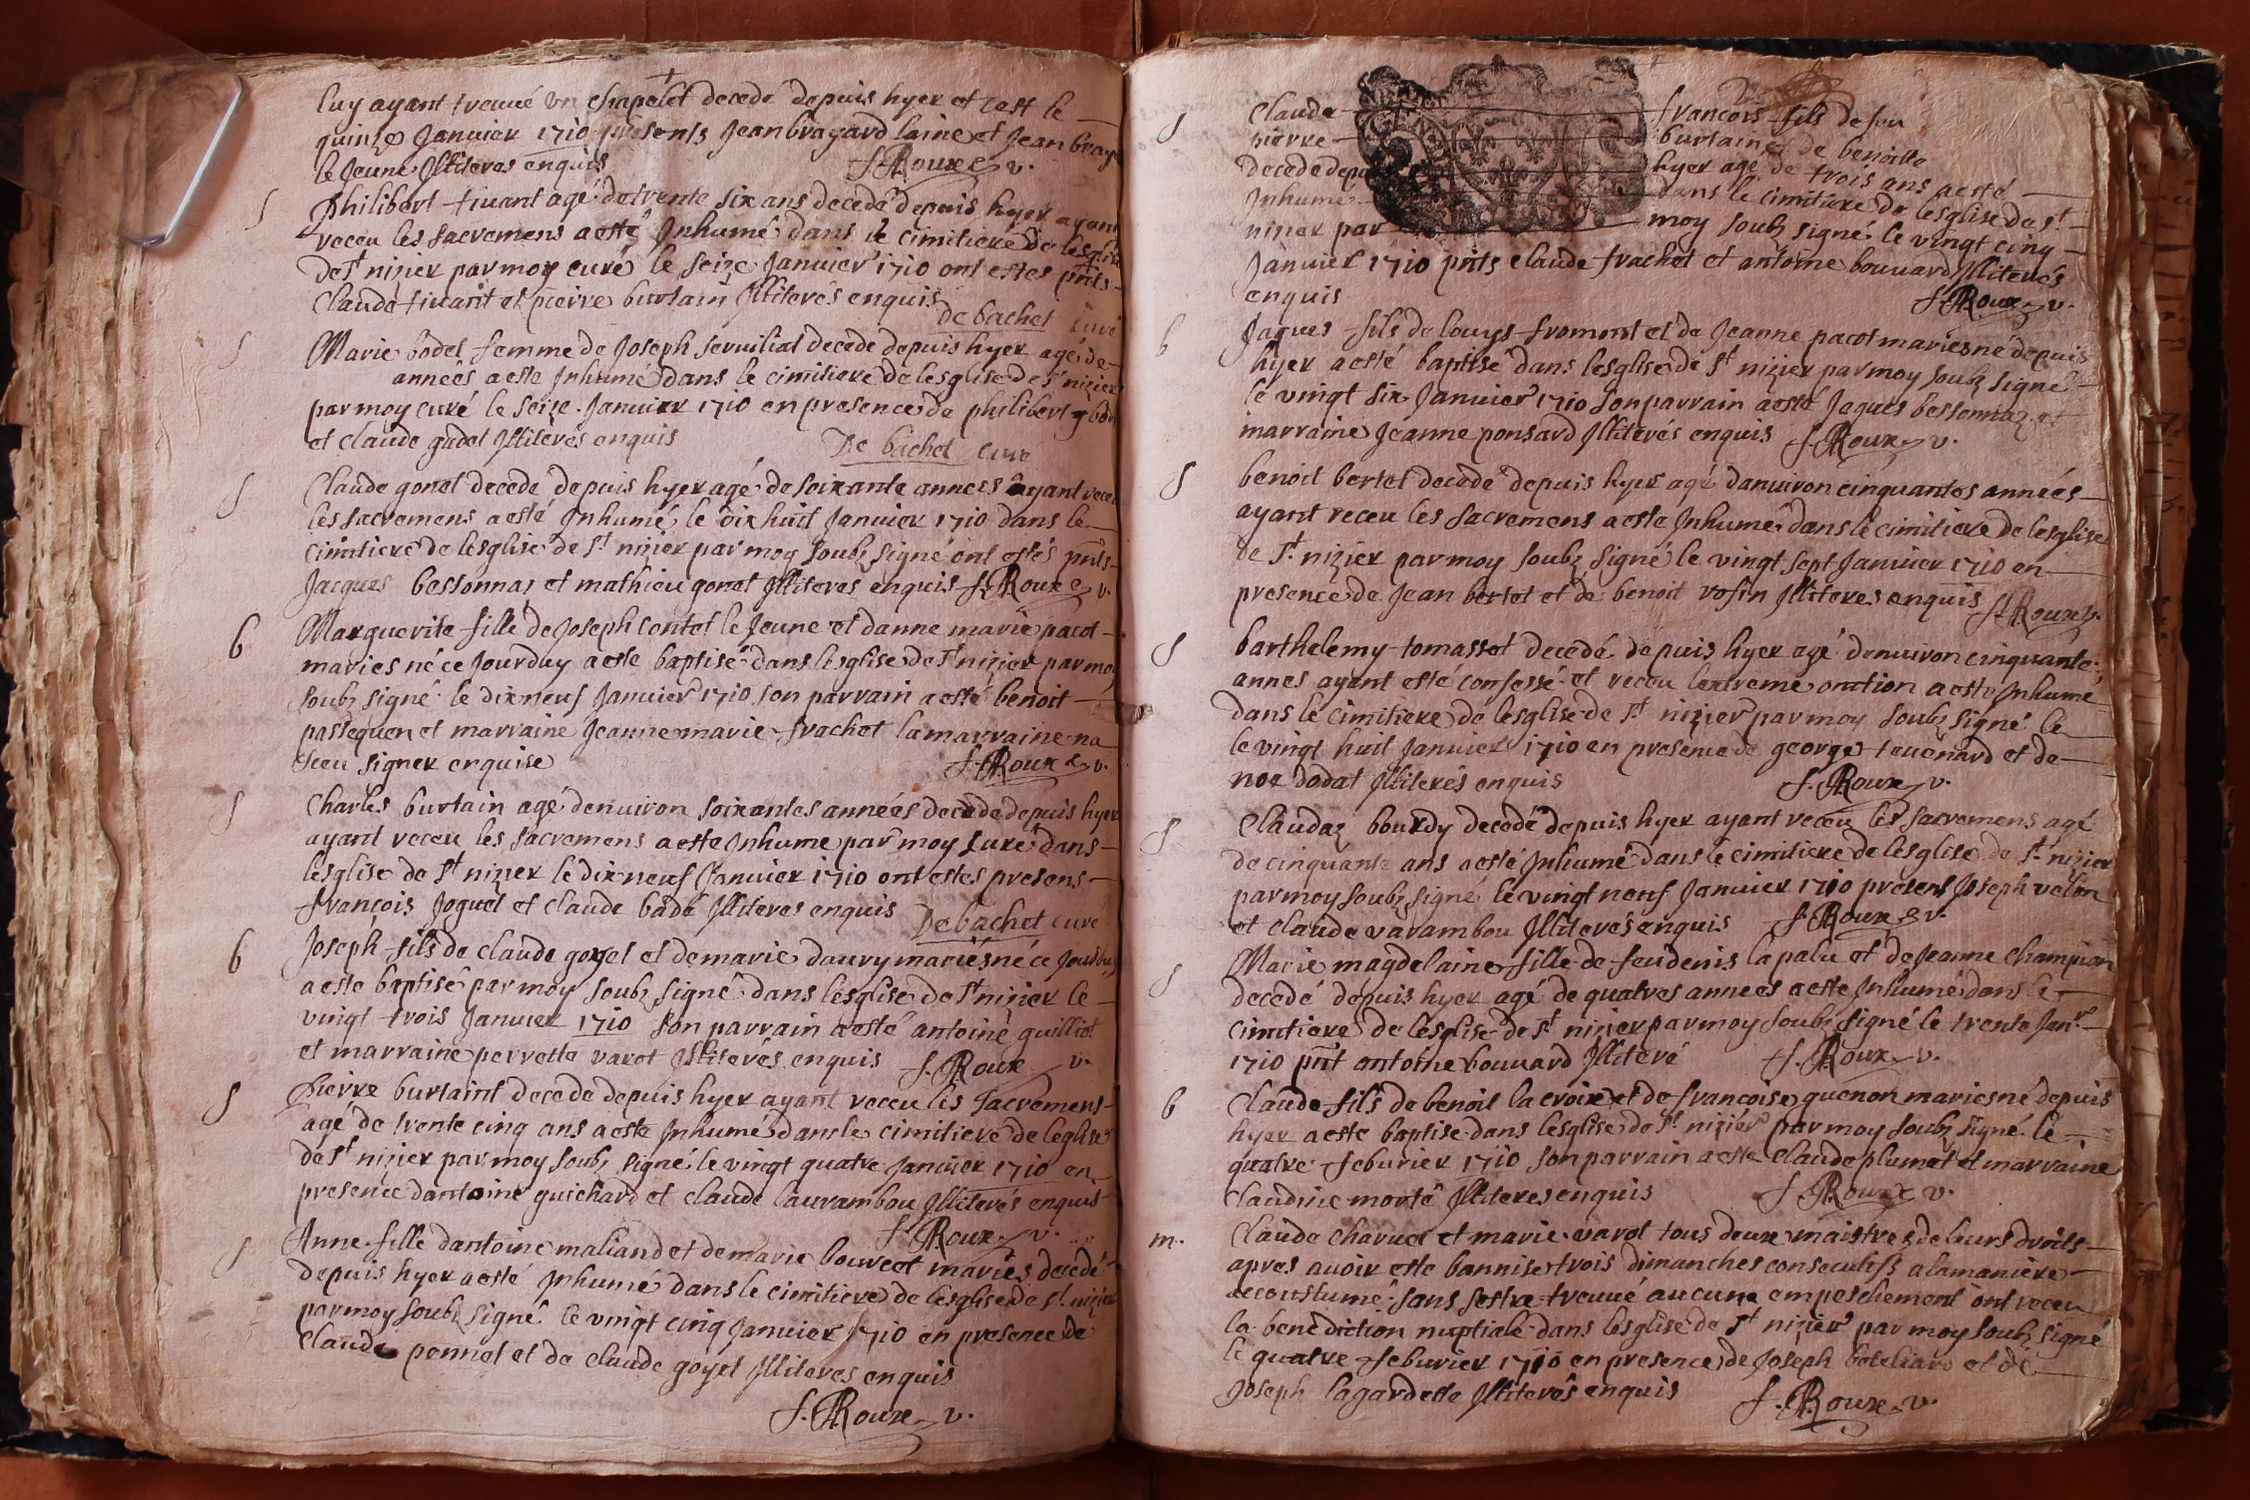 luy ayant treuué un chapelet decede depuis hyer et cest le
quinze Januier 1710 presents Jean brayard laine et Jean bray
le Jeune Illiteres enquis S. Roux v.
S Philibert tiuant agé de trente six ans decedé depuis hyer ayant
receu les sacremens a esté Inhumé dans le cimitiere de lesglise
de St nizier par moy curé le seize Januier 1710 ont estes pnts
Claude tiuant et pierre burtain Illiterés enquis
De bachet curé
S Marie bodet femme de Joseph seruilial decede depuis hyer agé de
années a este Inhumé dans le cimitiere de lesglise de St nizier
par moy curé le seize Januier 1710 en presence de philibert
et claude gadet Illiterés enquis De bachet curé
S Claude gonet decede depuis hyer agé de soixante annees ayant receu
les sacremens a esté Inhumé le dix huit Januier 1710 dans le
cimitiere de lesglise de St nizier par moy soubz signé ont estés pnts
Jacques bessonnas et mathieu gonet Illiteres enquis S. Roux v.
b Marguerite fille de Joseph contet le Jeune et danne marie pacot
maries né ce Jourduy a este baptisé dans lesglise de St nizier par moy
soubz signé le dix neuf Januier 1710 son parrain a esté benoit
passequen et marraine Jeanne marie frachet la marraine na
sceu signer enquise S. Roux v.
S Charles burtain agé denuiron soixantes années decede depuis hyer
ayant receu les sacremens a este Inhume par moy curé dans
lesglise de St nizier le dix neuf Januier 1710 ont estes presens
francois Joguet et claude badé Illiteres enquis De bachet curé
b Joseph fils de claude goyet et de marie daury mariés né ce Jourduy
a este baptisé par moy soubz signé dans lesglise de St nizier le
vingt trois Januier 1710 son parrain a esté antoine guilliot
et marraine perrette varot Illiterés enquis S. Roux v.
S Pierre burtaint decede depuis hyer ayant receu les sacremens
agé de trente cinq ans a este Inhumé dans le cimitiere de leglise
de St nizier par moy soubz signé le vingt quatre Januier 1710 en
presence dantoine guichard et claude laurambou Illiterés enquis
S. Roux v.
S Anne fille dantoine maliand et de marie bouveot mariés decedé
depuis hyer a esté Inhumé dans le cimitiere de lesglise de St nizier
par moy soubz signé le vingt cinq Januier 1710 en presence de
Claude ponnet et de claude goyet Illiteres enquis
S. Roux v.
S Claude francois fils de feu
pierre burtain et de benoitte
decede depuis hyer agé de trois ans a esté
Inhume dans le cimitiere de lesglise de St
nizier par moy soubz signé le vingt cinq
Januier 1710 pnts claude frachet et antoine bouuard Illiterés
enquis S. Roux v.
b Jaques fils de louys fromont et de Jeanne pacot maries né depuis
hyer a esté baptisé dans lesglise de St nizier par moy soubz signé
le vingt six Januier 1710 son parrain a esté Jaques bessonnaz et
marraine Jeanne ponsard Illiterés enquis S. Roux v.
S benoit bertet decedé depuis hyer agé danuiron cinquantes années
ayant receu les sacremens a este Inhumé dans le cimitiere de lesglise
de St nizier par moy soubz signé le vingt sept Januier 1710 en
presence de Jean bertet et de benoit vosin Illiteres enquis S. Roux v.
S barthelemy tomasset decedé depuis hyer agé denuiron cinquante
annes ayant esté confessé et receu lextreme onction a este Inhumé
dans le cimitiere de lesglise de St nizier par moy soubz signé le
le vingt huit Januier 1710 en presence de george teuenard et de
noe dodat Illiterés enquis S. Roux v.
S Claudaz bourdy decedé depuis hyer ayant receu les sacremens agé
de cinquante ans a esté Inhumé dans le cimitiere de lesglise de St nizier
par moy soubz signé le vingt neuf Januier 1710 presens Joseph velon
et claude varambou Illiterés enquis S. Roux v.
S Marie magdelaine fille de feu denis la palu et de Jeanne champion
decedé depuis hyer agé de quatres annees a este Inhumé dans le
cimitiere de lesglise de St nizier par moy soubz signé le trente Janr
1710 pnt antoine bouuard Illiteré S. Roux v.
b Claude fils de benoit la croix et de francoise guenon maries né depuis
hyer a este baptise dans lesglise de St nizier par moy soubz signé le
quatre feburier 1710 son parrain a este claude plumet et marraine
Claudine morte Illiteres enquis S. Roux v.
m. Claude charuet et marie varot tous deux maistres de leurs droits
apres auoir este bannise trois dimanches consecutifs a la maniere
accoustumé sans sestre treuué aucune empeschement ont receu
la benediction nuptiale dans lesglise de St nizier par moy soubz signé
le quatre feburier 1710 en presence de Joseph boteliard et de
Joseph lagardette Illiterés enquis S. Roux v.